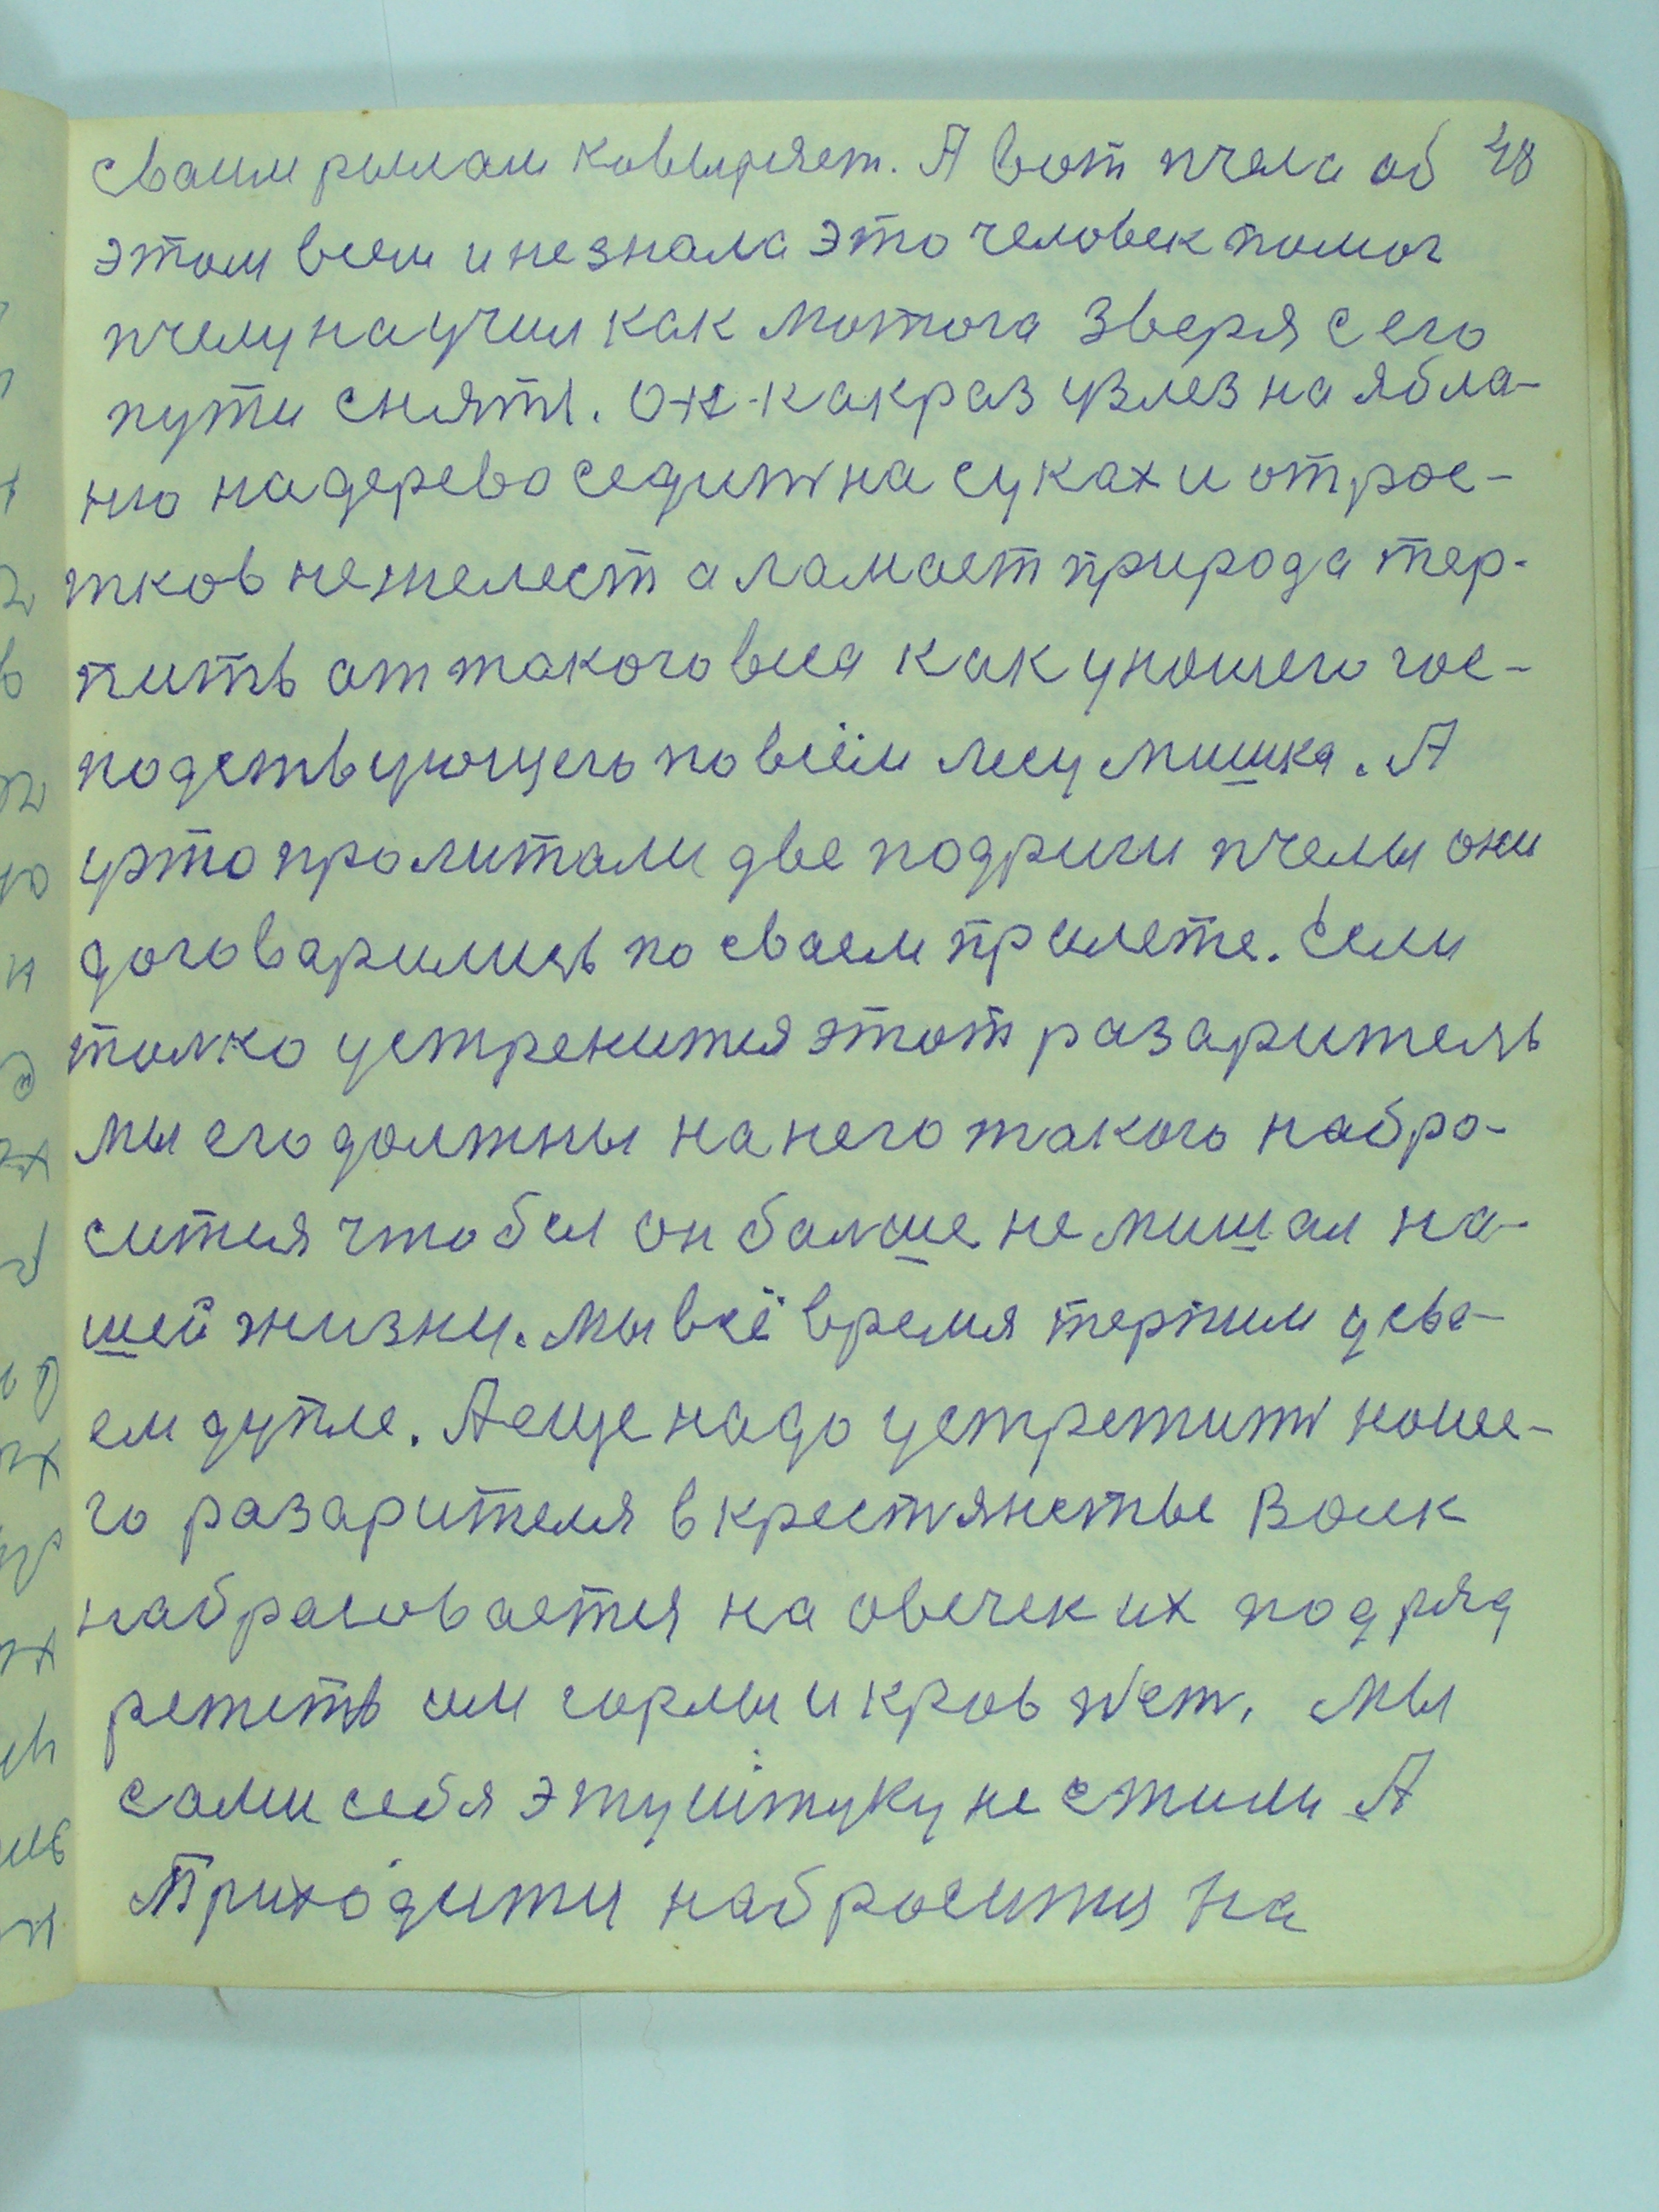 сваим рылам ковыряет. А вот пчела об 48
этом всем и не знала это человек помог
пчелу научил как мотога зверя с его
пути снять. Он как раз узлез на ябла-
ню на дерево седить на суках и отрос-
тков не желест а ламает природа тер-
пить от такого вся как у нашего гос-
подствующего по всём лесу мишка. А
ужто пролитали две подриги пчелы они
договарились по сваем прилете. Если
толко устренится этот разаритель
мы его должны на него такого набро-
сится что бы он балше не мишал на-
шей жизни. Мы всё время терпим у сва-
ем дупле. А еще надо устретить наше-
го разарителя в крестянстве Волк
набрасовается на овечек их подряд
режеть им горлы и кров пьет. Мы
сами себя эту штуку не стили А
Приходити набросится на